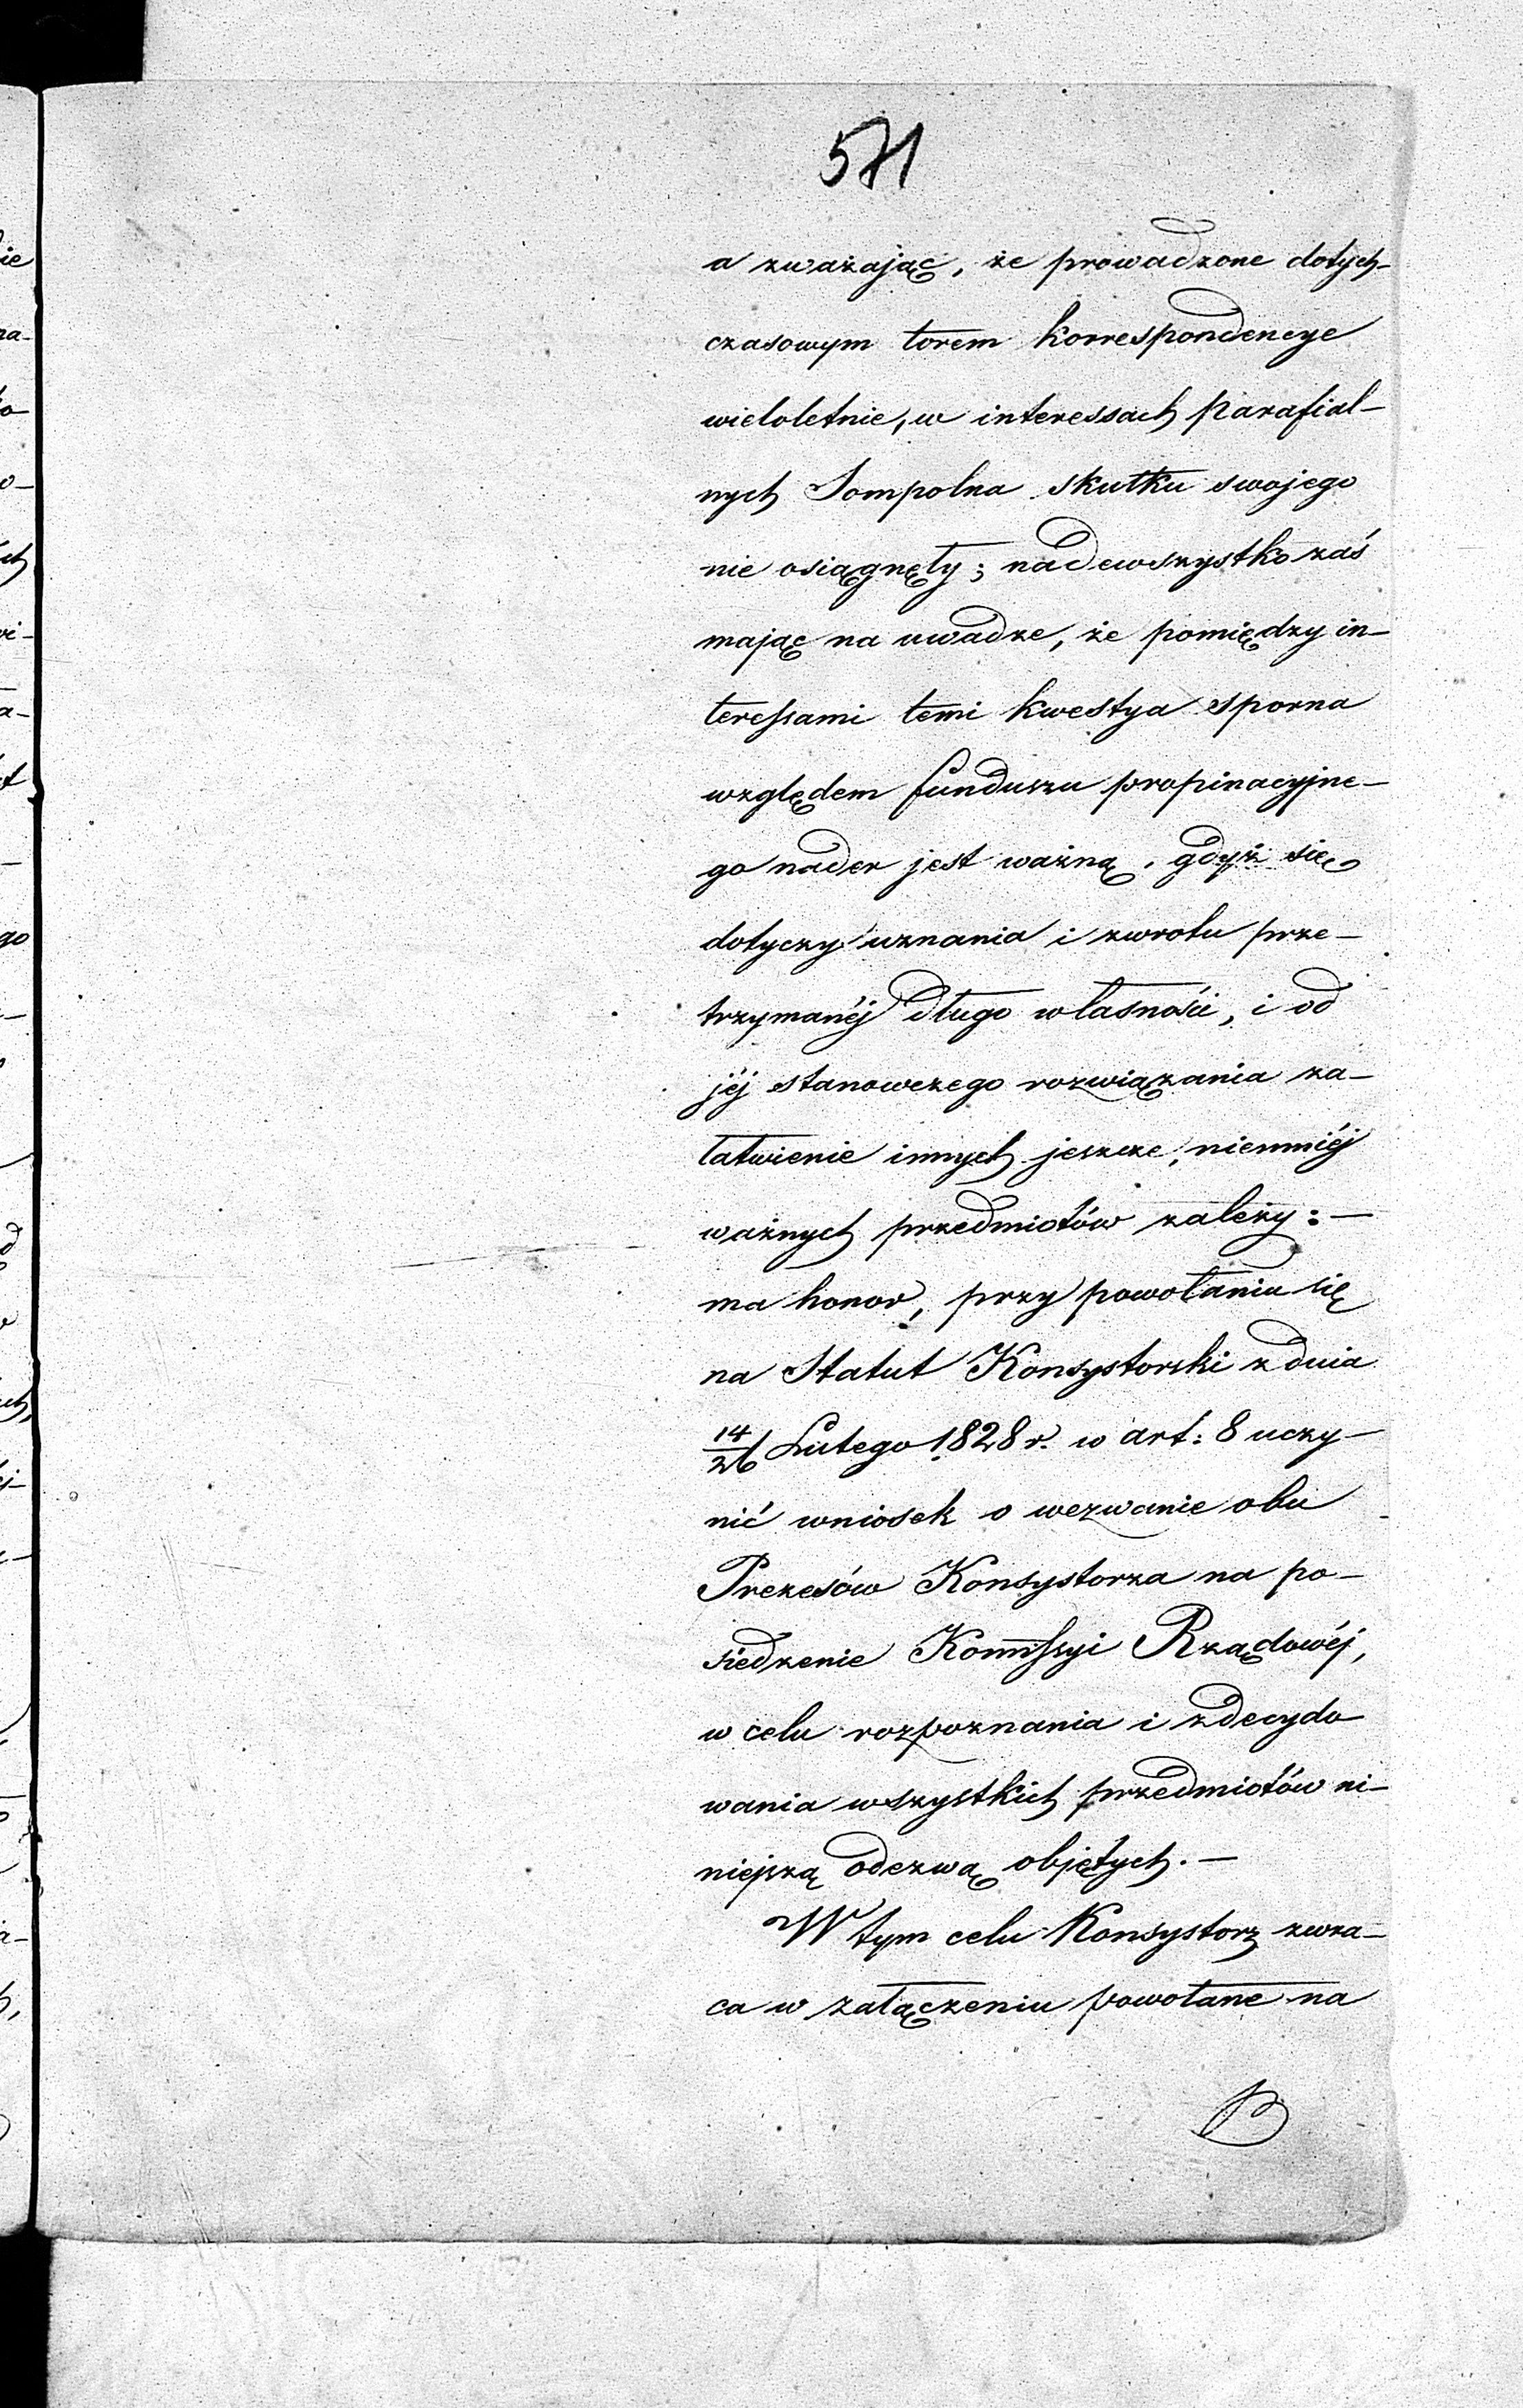 571
a zważając, że prowadzone dotych-
czasowym torem korrespondencye
wieloletnie, w interessach parafial-
nych Sompolna skutku swojego
nie osiągnęły; nadewszystko zaś
mając na uwadze, że pomiędzy in-
teressami temi kwestya sporna
względem funduszu propinacyjne-
go nader jest ważną, gdyż się
dotyczy uznania i zwrotu prze-
trzymanéj długo własności, i od
jéj stanowczego rozwiązania za-
łatwienie innych jeszcze, niemniéj
ważnych przedmiotów zależy: —
ma honor, przy powołaniu się
na Statut Konsystorski z dnia
14/26 Lutego 1828 r. w art: 8 uczy-
nić wniosek o wezwanie obu
Prezesów Konsystorza na po-
siedzenie Kommissyi Rządowéj,
w celu rozpoznania i zdecydo
wania wszystkich przedmiotów ni-
niejszą odezwą objętych. —
W tym celu Konsystorz zwra-
ca w załączeniu powołane na